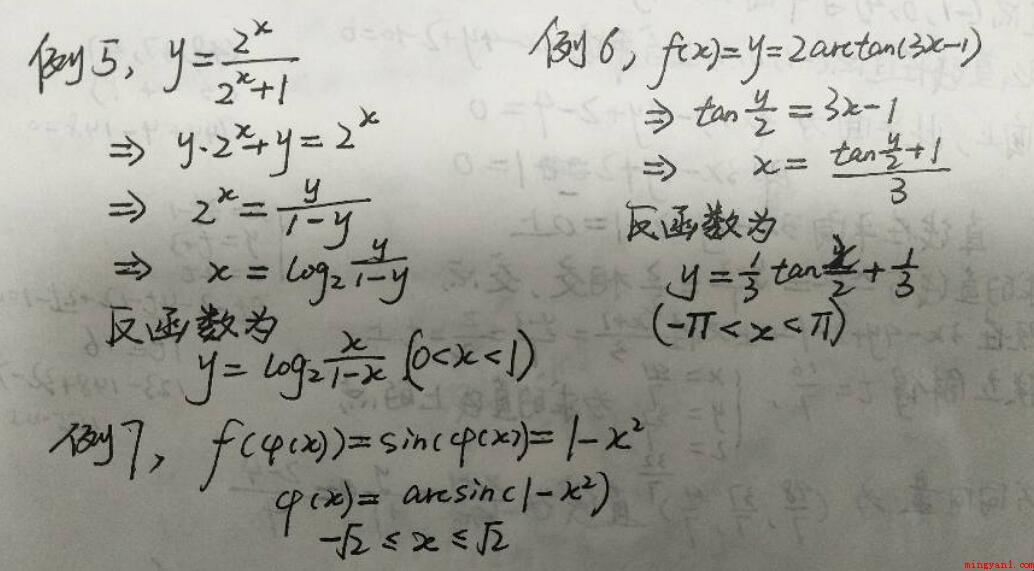 例5, y = \frac{2^x}{2^x+1}
⇒ y·2^x+y = 2^x
⇒ 2^x = \frac{y}{1-y}
⇒ x = log_2 \frac{y}{1-y}
反函数为
y = log_2 \frac{x}{1-x} (0<x<1)
例6, f(x)=y=2arctan(3x-1)
⇒ tan\frac{y}{2} = 3x-1
⇒ x = \frac{tan\frac{y}{2}+1}{3}
反函数为
y = \frac{1}{3} tan\frac{x}{2} + \frac{1}{3}
(-π < x < π)
例7, f(φ(x)) = sin(φ(x)) = 1-x^2
φ(x) = arcsin(1-x^2)
-√2 ≤ x ≤ √2
mingyan1.com